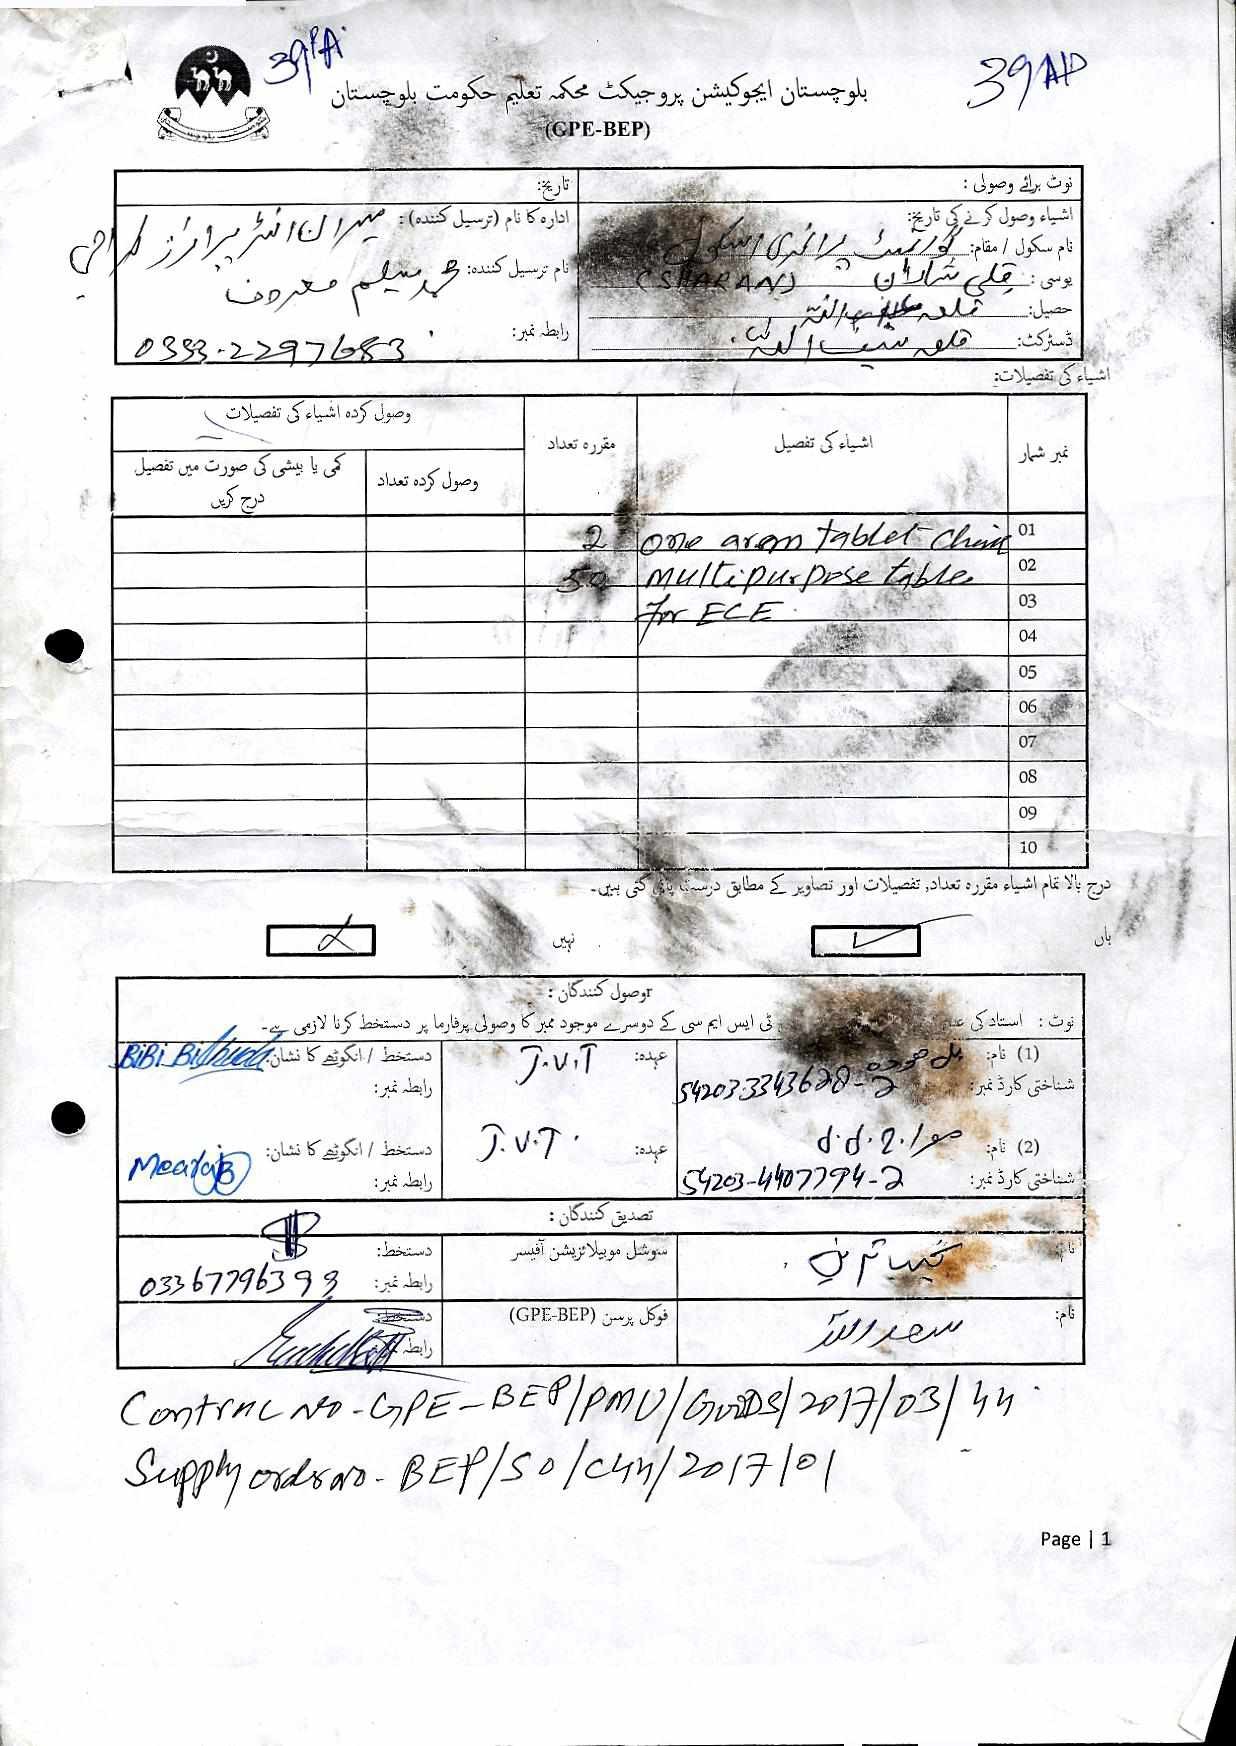 39PA
39AP
بلوچستان ایجوکیشن پروجیکٹ محکمہ تعلیم حکومت بلوچستان
(GPE-BEP)
نوٹ برائے وصولی :
تاریخ:
اشیاء وصول کرنے کی تاریخ:
ادارہ کا نام (ترسیل کنندہ):
نام سکول / مقام: گورنمنٹ پرائمری اسکول
یوسی : کلی شاران (SHARAN)
نام ترسیل کنندہ: محمد سلیم معروف
حصیل: قلعہ سیف اللہ
رابطہ نمبر: 0333-2297683
ڈسٹرکٹ: قلعہ سیف اللہ
اشیاء کی تفصیلات:
نمبر شمار
اشیاء کی تفصیل
مقررہ تعداد
وصول کردہ اشیاء کی تفصیلات
وصول کردہ تعداد
کمی یا بیشی کی صورت میں تفصیل درج کریں
01 one arem tablet Chair 2
02 multipurpose table 50
03 for ECE
04
05
06
07
08
09
10
درج بالا تمام اشیاء مقررہ تعداد, تفصیلات اور تصاویر کے مطابق درست پائی گئی ہیں۔
ہاں
نہیں
وصول کنندگان :
نوٹ : استاد کی ٹی ایس ایم سی کے دوسرے موجود ممبر کا وصولی پرفارما پر دستخط کرنا لازمی ہے۔
(1) نام:
عہدہ: J.V.T
دستخط / انگوٹھے کا نشان: BiBi
شناختی کارڈ نمبر: 54203-3343628-2
رابطہ نمبر:
(2) نام:
عہدہ: J.V.T.
دستخط / انگوٹھے کا نشان: Mearaj
شناختی کارڈ نمبر: 54203-4407794-2
رابطہ نمبر:
تصدیق کنندگان :
نام:
سوشل موبیلائزیشن آفیسر
دستخط:
رابطہ نمبر: 03367796399
نام: سعد اللہ
فوکل پرسن (GPE-BEP)
دستخط:
رابطہ
Contrac No-GPE-BEP/PMU/GooDS/2017/03/44
Supply order no-BEP/SO/C44/2017/01
Page | 1